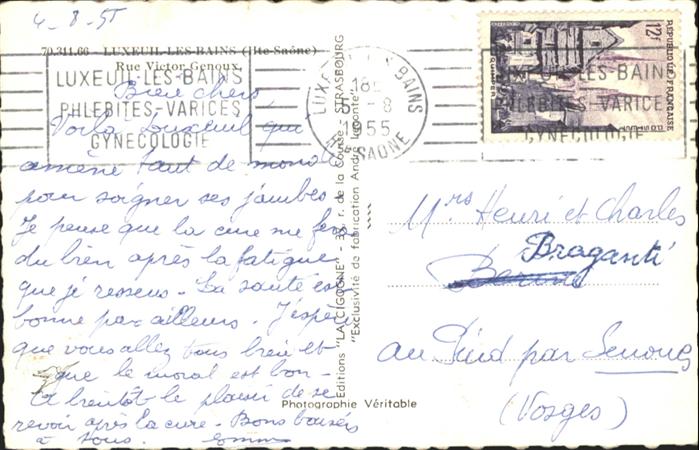 4-8-55
70.311.66 - LUXEUIL-LES-BAINS (Hte-Saône)
Rue Victor Genoux
LUXEUIL-LES-BAINS
PHLEBITES-VARICES
GYNECOLOGIE
Bien chers
Voilà Luxeuil qui
amène tant de monde
pour soigner ses jambes.
Je pense que la cure me fera
du bien après la fatigue
que je ressens. La santé est
bonne par ailleurs. J'espère
que vous allez tous bien et
que le moral est bon.
A bientôt le plaisir de se
revoir après la cure. Bons baisers
à tous.
Editions "LA CIGOGNE" - 38, r. de la Course, STRASBOURG
"Exclusivité de fabrication André Leconte"
Photographie Véritable
LUXEUIL-LES-BAINS
18H
-8
1955
Hte SAONE
12F
REPUBLIQUE FRANÇAISE
POSTES
QUIMPER
LUXEUIL-LES-BAINS
PHLEBITES-VARICES
GYNECOLOGIE
Mrs Henri et Charles
Braganti
au Pind par Senones
(Vosges)